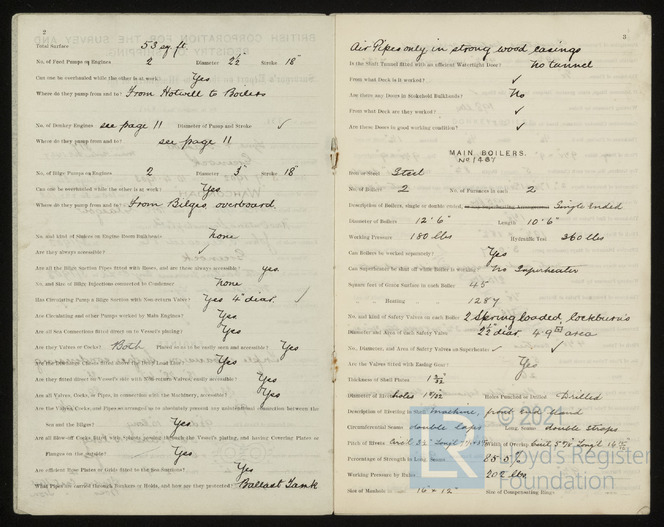 2
Total Surface 53 sq. ft.
No. of Feed Pumps on Engines 2 Diameter 2½" Stroke 18"
Can one be overhauled while the other is at work? Yes
Where do they pump from and to? From Hotwell to Boilers
No. of Donkey Engines see page 11 Diameter of Pump and Stroke ✓
Where do they pump from and to? see page 11
No. of Bilge Pumps on Engines 2 Diameter 3" Stroke 18"
Can one be overhauled while the other is at work? Yes
Where do they pump from and to? From Bilges overboard
No. and kind of Sluices on Engine Room Bulkheads None
Are they always accessible? ✓
Are all the Bilge Suction Pipes fitted with Roses, and are these always accessible? yes.
No. and Size of Bilge Injections connected to Condenser None
Has Circulating Pump a Bilge Suction with Non-return Valve? Yes 4" diar. ✓
Are Circulating and other Pumps worked by Main Engines? Yes
Are all Sea Connections fitted direct on to Vessel's plating? Yes
Are they Valves or Cocks? Both Placed so as to be easily seen and accessible? Yes
Are the Discharge Chests fitted above the Deep Load Line? Yes
Are they fitted direct on Vessel's side with Non-return Valves, easily accessible? Yes
Are all Valves, Cocks, or Pipes, in connection with the Machinery, accessible? Yes
Are the Valves, Cocks, and Pipes so arranged as to absolutely prevent any unintentional connection between the
Sea and the Bilges? Yes
Are all Blow-off Cocks fitted with Spigots passing through the Vessel's plating, and having Covering Plates or
Flanges on the outside? Yes
Are efficient Rose Plates or Grids fitted to the Sea Suctions? Yes
What Pipes are carried through Bunkers or Holds, and how are they protected? Ballast Tank
3
Air Pipes only in strong wood casings
Is the Shaft Tunnel fitted with an efficient Watertight Door? No tunnel
From what Deck is it worked? ✓
Are there any Doors in Stokehold Bulkheads? No
From what Deck are they worked? ✓
Are these Doors in good working condition? ✓
MAIN BOILERS.
No. 1467
Iron or Steel Steel
No. of Boilers 2 No. of Furnaces in each 2
Description of Boilers, single or double ended, Single Ended
Diameter of Boilers 12'.6" Length 10'.6"
Working Pressure 180 lbs Hydraulic Test 360 lbs
Can Boilers be worked separately? Yes
Can Superheater be shut off while Boiler is working? No Superheater
Square feet of Grate Surface in each Boiler 45
" Heating " 1287
No. and kind of Safety Valves on each Boiler 2 Spring loaded, Cockburn's
Diameter and Area of each Safety Valve 2½" diar 4.9 area
No., Diameter, and Area of Safety Valves on Superheater ✓ ✓
Are the Valves fitted with Easing Gear? Yes
Thickness of Shell Plates 1 3/32
Diameter of Rivet holes Holes Punched or Drilled Drilled
Description of Riveting in Shell machine,
Circumferential Seams double laps Long. Seams double straps
Pitch of Rivets Width of Overlap
Percentage of Strength in Long. Seams
Working Pressure by Rules lbs
Size of Manhole in 16" × 12" Size of Compensating Rings
© 2021
LR
Lloyd's Register
Foundation